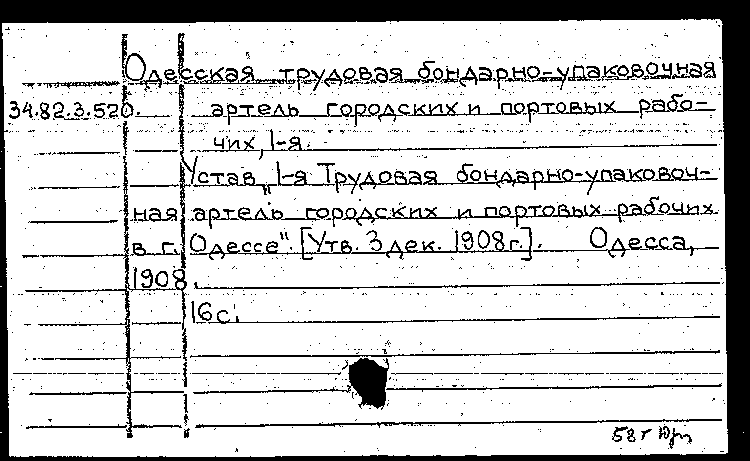 Одесская трудовая бондарно-упаковочная
34.82.3.520. артель городских и портовых рабо-
чих, I-я.
Устав „I-я Трудовая бондарно-упаковоч-
ная артель городских и портовых рабочих
в г. Одессе". [Утв. 3 дек. 1908 г.]. Одесса,
1908.
16 с.
58 г